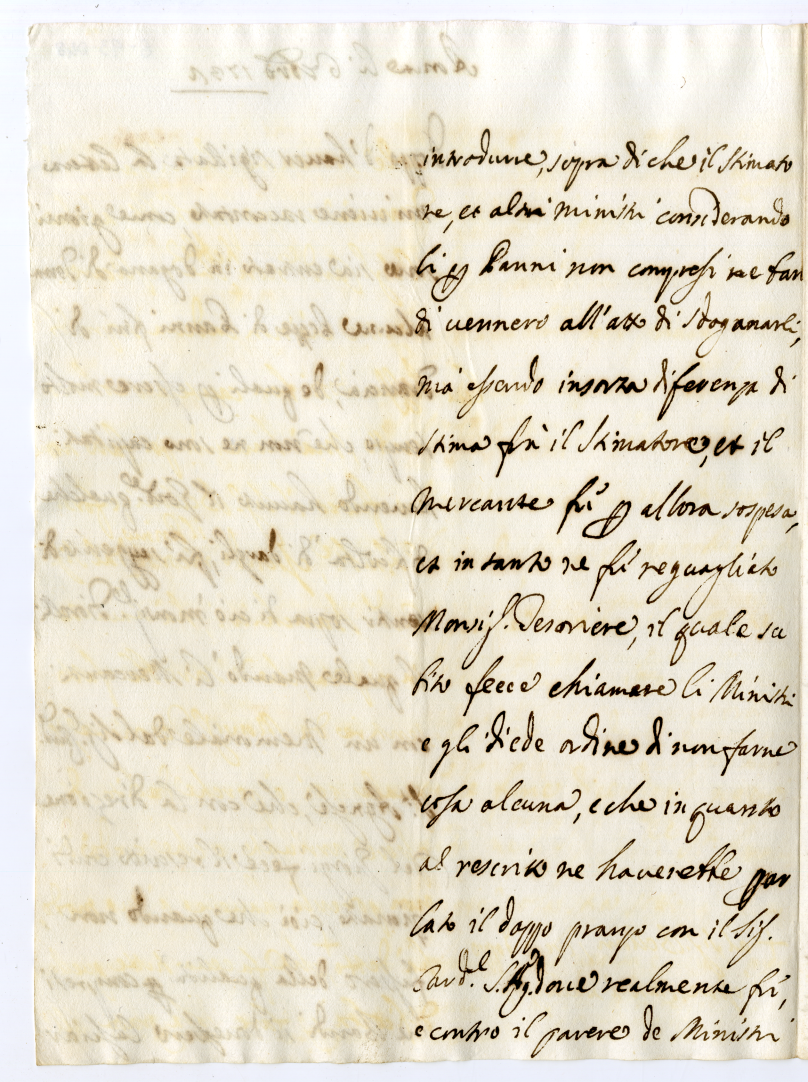 introdurre, sopra di che il stimato
re, et altri ministri considerando
li Panni non compresi ne ban
di uennero all'atto di sdoganarli,
mà essendo insorta diferenza di
stima frà il stimatore, et il
Mercante fù allora sospesa,
et in tanto ne fù reguagliato
Monsig.r Tesoriere, il quale su
bito fecce chiamare li Ministri
e gli diede ordine di non farne
cosa alcuna, e che in quanto
al rescritto ne haverebbe par
lato il doppo pranzo con il Sig.
Card.l doue realmente fù,
e contro il parere de Ministri